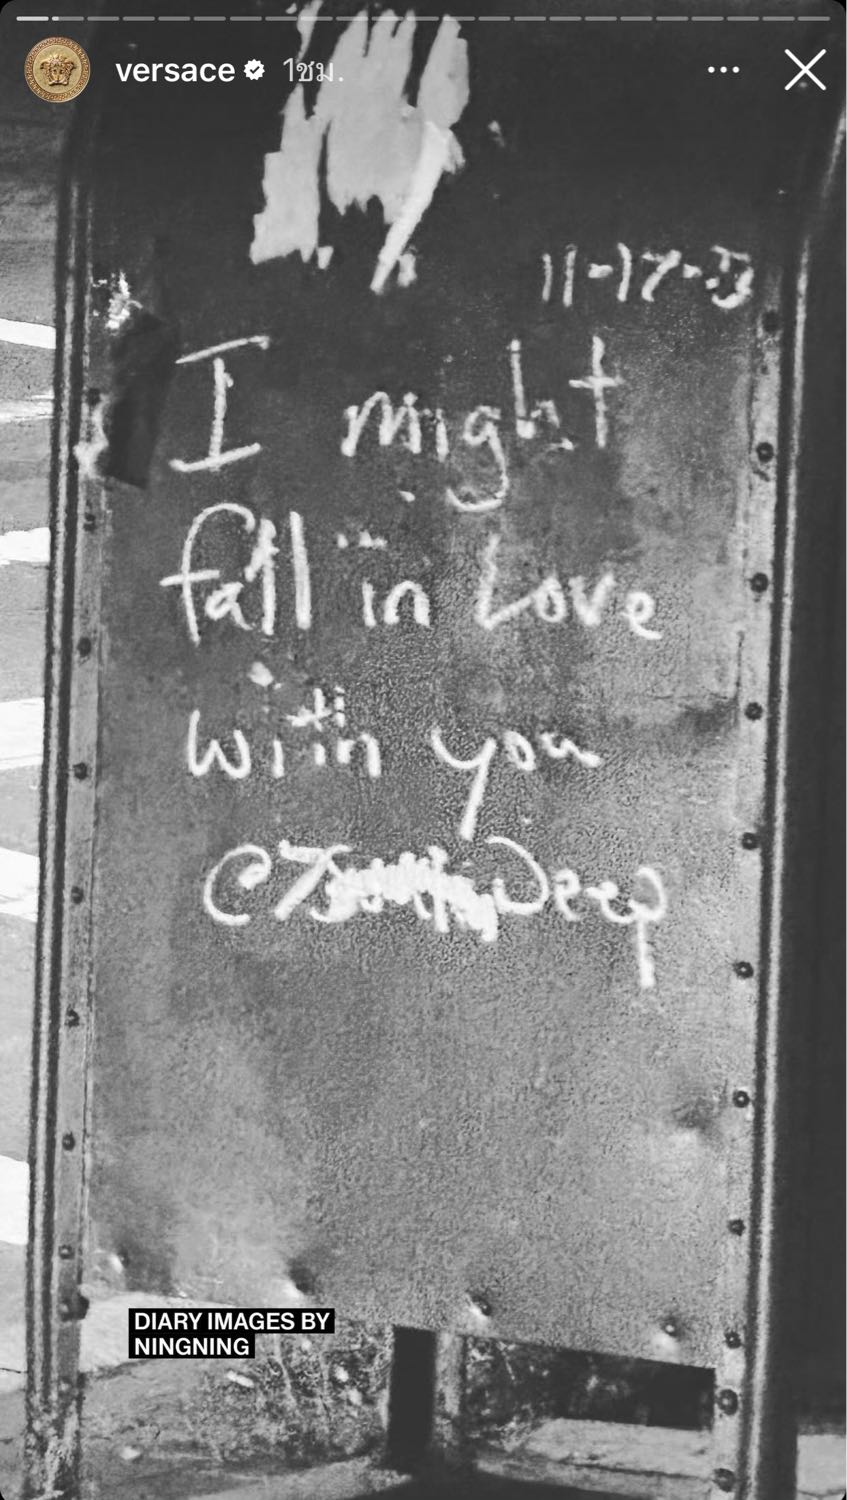 versace 1ชม.
11-17-
I might
fall in Love
with you
Deep
DIARY IMAGES BY
NINGNING